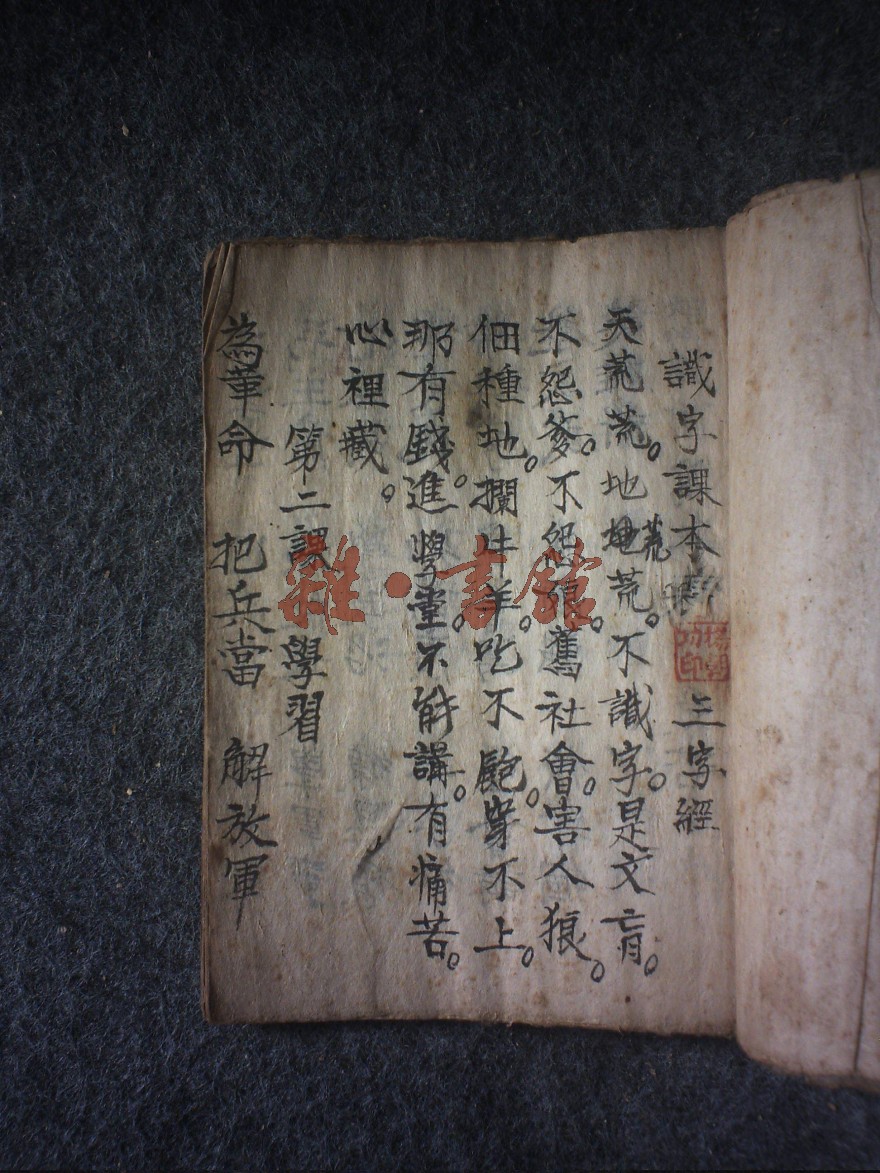 識字課本 三字經
天荒荒。地荒荒。不識字。是文盲。
不怨爹。不怨娘。舊社會。害人狼。
佃種地。攔牛羊。吃不飽。穿不上。
那有錢。進學堂。不能講。有痛苦。
心裡藏。
第二課 學習
為革命 把兵當 解放軍
雜·書館